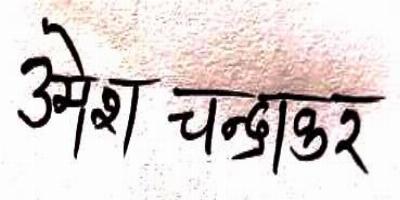 उमेश चन्द्राकर